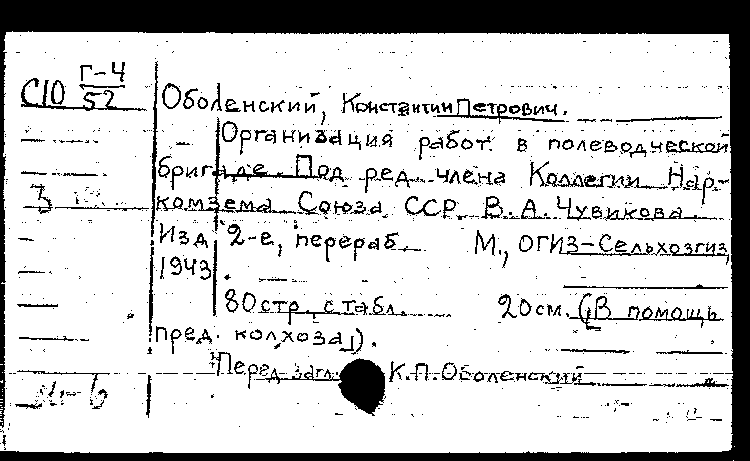 С10 Г-4
52
Оболенский, Константин Петрович.
Организация работ в полеводческой
бригаде. Под ред. члена Коллегии Нар-
комзема Союза ССР В. А. Чувикова.
Изд 2-е, перераб. М., ОГИЗ-Сельхозгиз,
1943.
80 стр. с табл. 20 см. (В помощь
пред. колхоза).
Перед загл. К.П. Оболенский